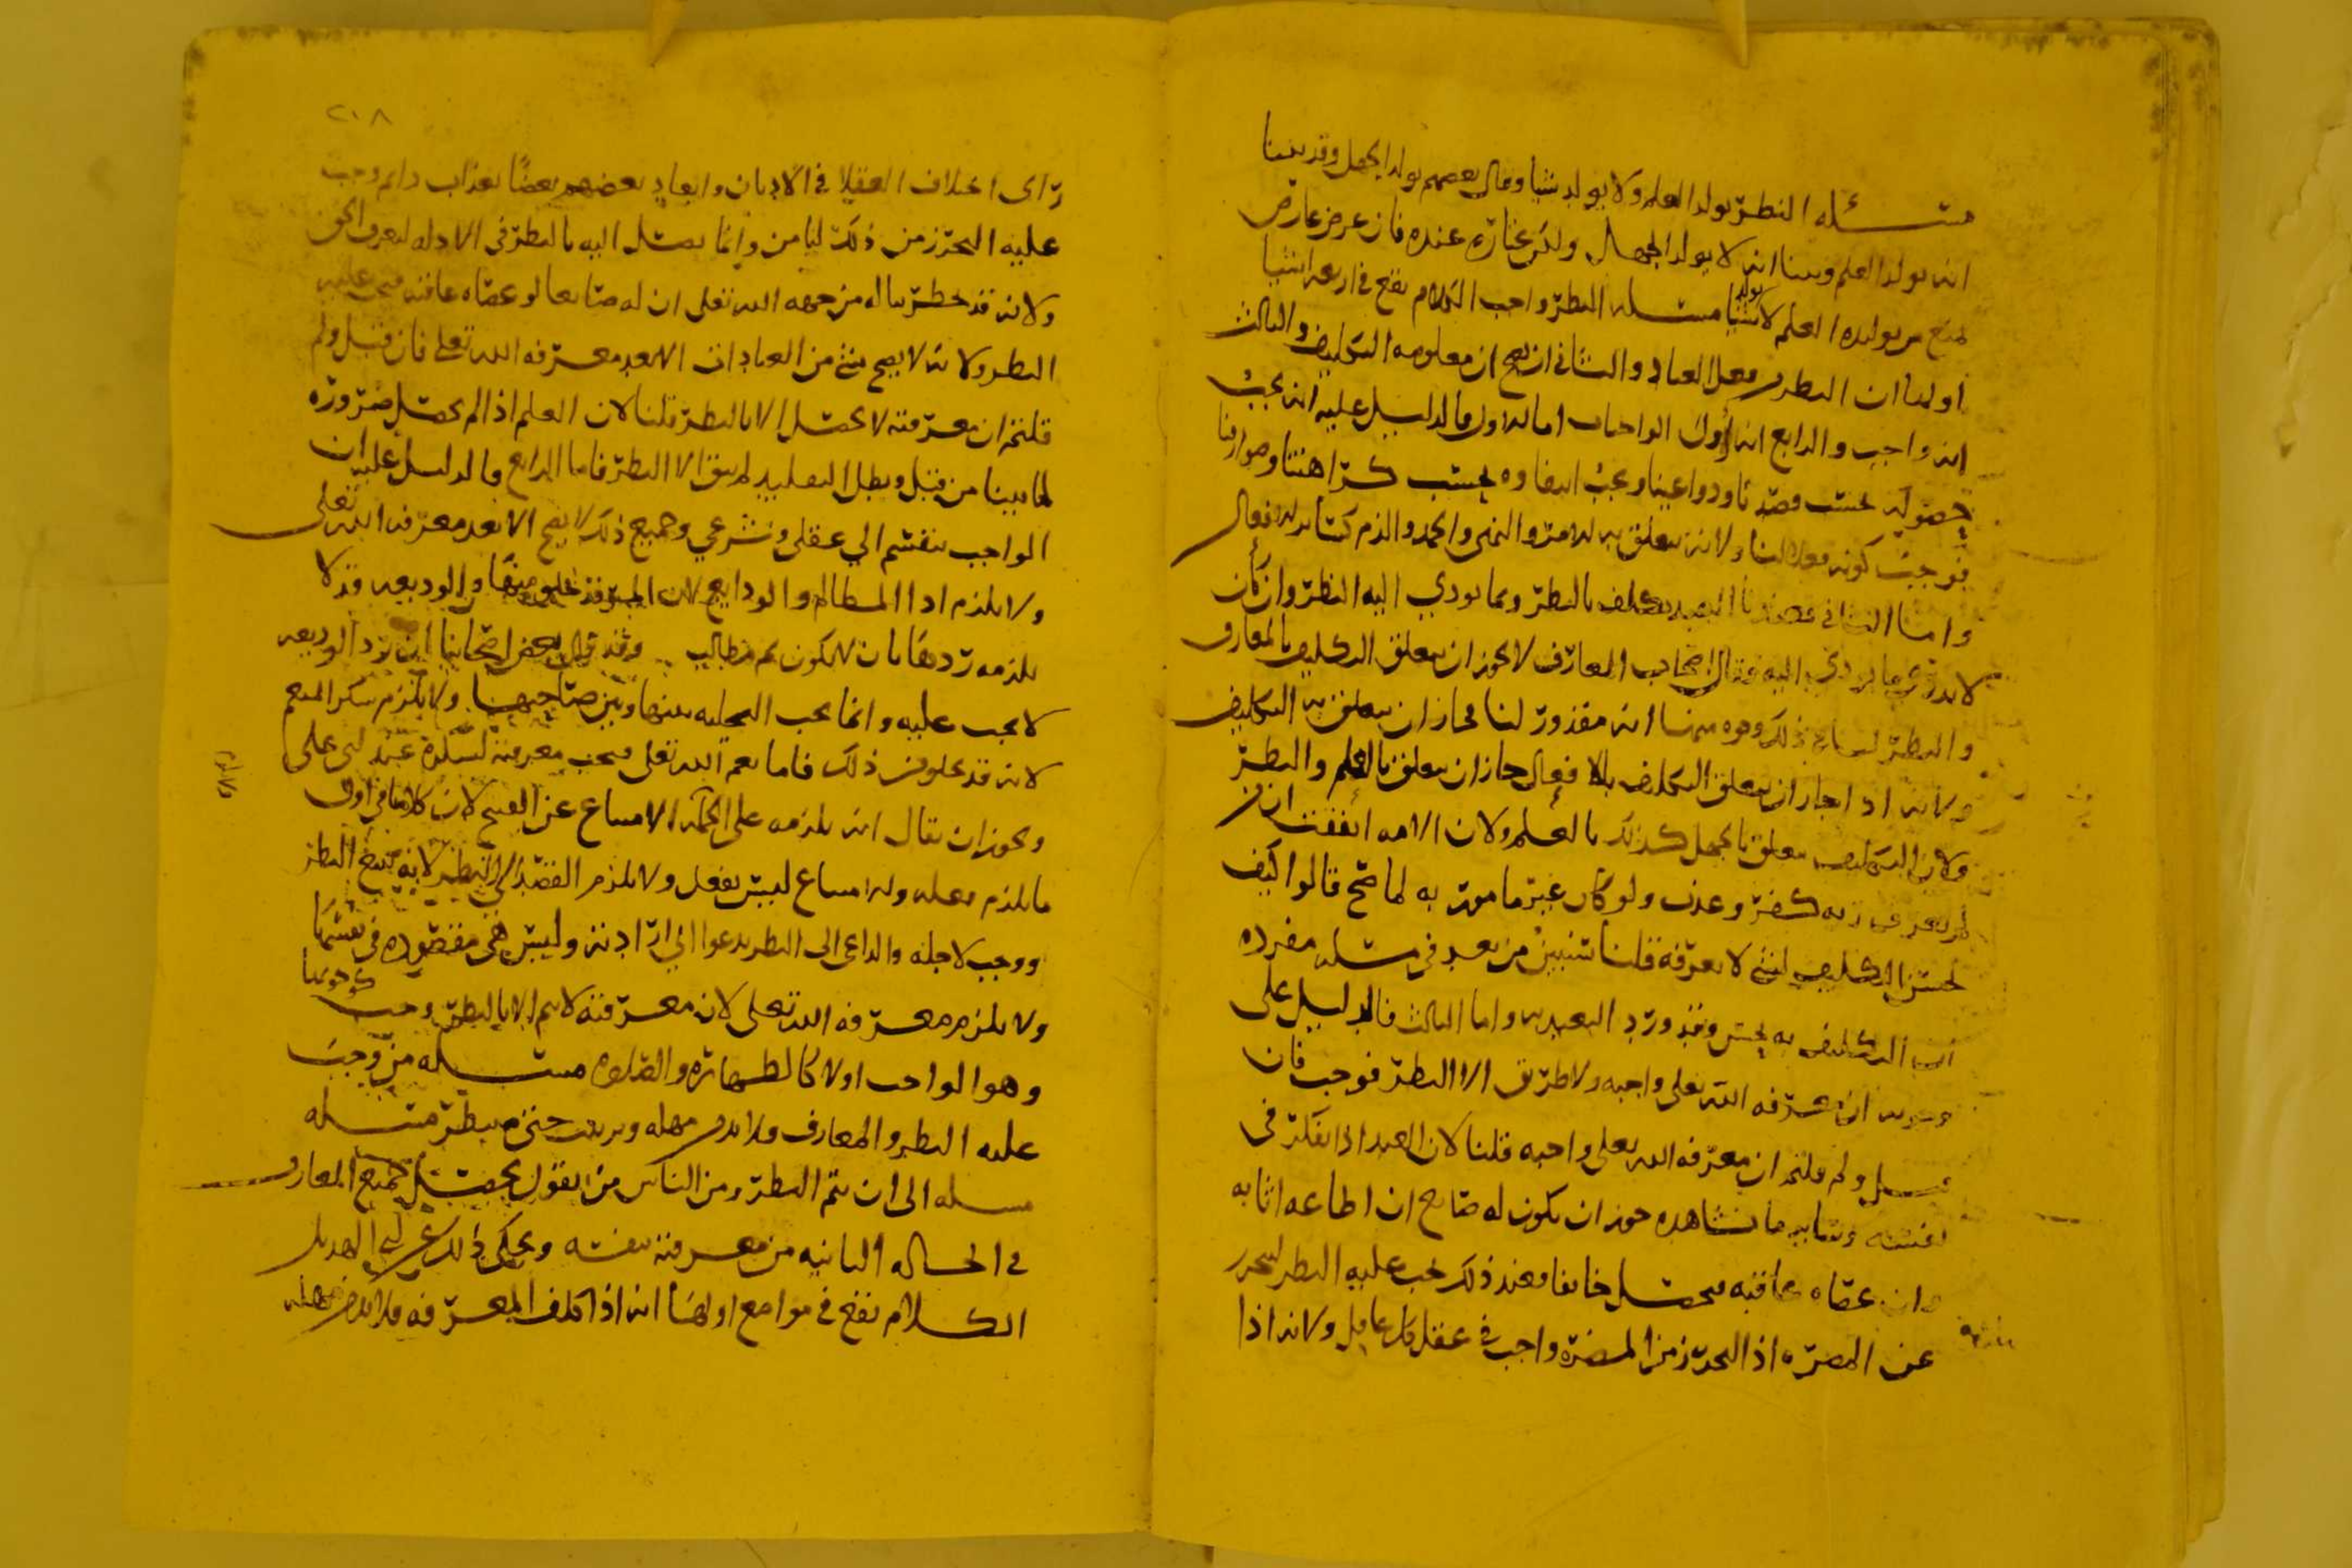 مسئله النظر يولد العلم ولا يولد شيا وقال بعضهم يولد الجهل وقد بينا
انه يولد العلم وبينا انه لا يولد الجهل ولكن عنده فان عرض عارض
لمنع من توليده العلم لا يولد شيا مسئله النظر واجب الكلام يقع في اربعه اشيا
اولها ان النظر فعل العباد والثاني ان يصح ان معلومه التكليف والثالث
انه واجب والرابع انه اول الواجبات اما الاول فالدليل عليه انه يجب
حصوله بحسب قصدنا ودواعينا ويجب انتفاوه بحسب كراهتنا وصوارفنا
فوجب كونه فعلا لنا ولانه يتعلق به الامر والنهي والحمد والذم كسائر الافعال
واما الثاني فعندنا العبد يكلف بالنظر وبما يودي اليه النظر وان كان
لا يدري ما يودي اليه وقال اصحاب المعارف لا يجوز ان يتعلق التكليف بالمعارف
والنظر لنا في ذلك وجوه منها انه مقدور لنا فجاز ان يتعلق به التكليف
ولانه اذا جاز ان يتعلق التكليف بالافعال جاز ان يتعلق بالعلم والنظر
ولان التكليف يتعلق بالجهل كذلك بالعلم ولان الامه اتفقت ان من
لم يعرف ربه كفر وعذب ولو كان غير مامور به لما صح قالوا كيف
يحسن التكليف لشي لا يعرفه قلنا سنبين من بعد في مسئله مفرده
ان التكليف به يحسن وقد ورد التعبد به واما الثالث فالدليل على
وجوبه ان معرفه الله تعلى واجبه ولا طريق الا النظر فوجب فان
قيل ولم قلتم ان معرفه الله تعلى واجبه قلنا لان العبد اذا تفكر في
نفسه وساير ما نشاهده جوز ان يكون له صانع ان اطاعه اثابه
وان عصاه عاقبه فيحصل خايفا فعند ذلك يجب عليه النظر ليتحرز
عن المضره اذ التحرز من المضرة واجب في عقل كل عاقل ولانه اذا
٢٠٨
راى اختلاف العقلا في الاديان وايعاد بعضهم بعضا بعذاب دايم وجب
عليه التحرز من ذلك ليامن وانما يصل اليه بالنظر في الادله ليعرف الحق
ولانه قد خطر بباله من جهه الله تعلى ان له صانعا لو عصاه عاقبه فيجب عليه
النظر ولانه لا يصح شي من العبادات الا بعد معرفه الله تعلى فان قيل ولم
قلتم ان معرفته لا تحصل الا بالنظر قلنا لان العلم اذا لم يحصل ضرورة
لما بينا من قبل وبطل التقليد لم يبق الا النظر فاما الرابع فالدليل عليه ان
الواجب ينقسم الي عقلي وشرعي وجميع ذلك لا يصح الا بعد معرفه الله تعلى
ولا يلزم اداا المظالم والودايع لان المر قد يخلو منها والوديعه قد لا
يلزمه ردها بان لا يكون ثم مطالب وقد قال بعض اصحابنا ان رد الوديعه
لا يجب عليه وانما يجب التخليه بينها وبين صاحبها ولا يلزم شكر المنعم
لانه قد يخلو من ذلك فاما نعم الله تعلى فيجب معرفته لشكره عند ابي علي
ويجوز ان يقال انه يلزمه على الجمله الامتناع عن القبيح لان كلامنا في اول
ما يلزم فعله والامتناع ليس بفعل ولا يلزم القصد الي النظر لانه يتبع النظر
ووجب لاجله والداعي الى النظر يدعوا الي ارادته وليس هي مقصوده في نفسها
ولا يلزم معرفه الله تعلى لان معرفته لا تتم الا بالنظر وجب كوجوبها
وهو الواجب اولا كالطهاره والصلوه مسئله من وجب
عليه النظر والمعارف فلا بد من مهله ويريث حتى ينظر مسئله
مسله الى ان يتم النظر ومن الناس من يقول يحصل جميع المعارف
في الحاله الثانيه من معرفته نفسه ويحكى ذلك عن ابي الهذيل
الكلام يقع في مواضع اولها انه اذا كلف المعرفه فلا بد من مهله